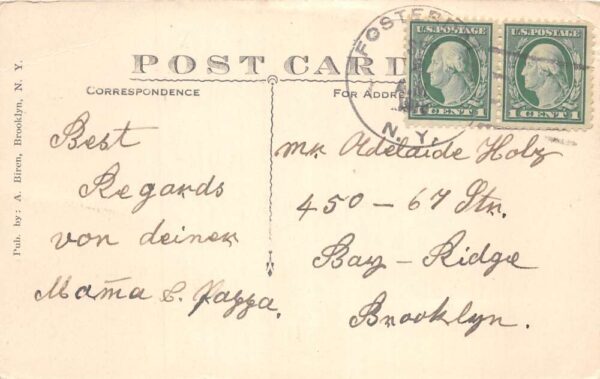 POST CARD
CORRESPONDENCE
FOR ADDRESS
Pub. by: A. Biren, Brooklyn, N. Y.
Best
Regards
von deiner
Mama &. Pappa.
Mr. Adelaide Holz
450 – 67 Str.
Bay – Ridge
Brooklyn.
FOSTER
N. Y.
U.S. POSTAGE
1 CENT 1
U.S. POSTAGE
1 CENT 1